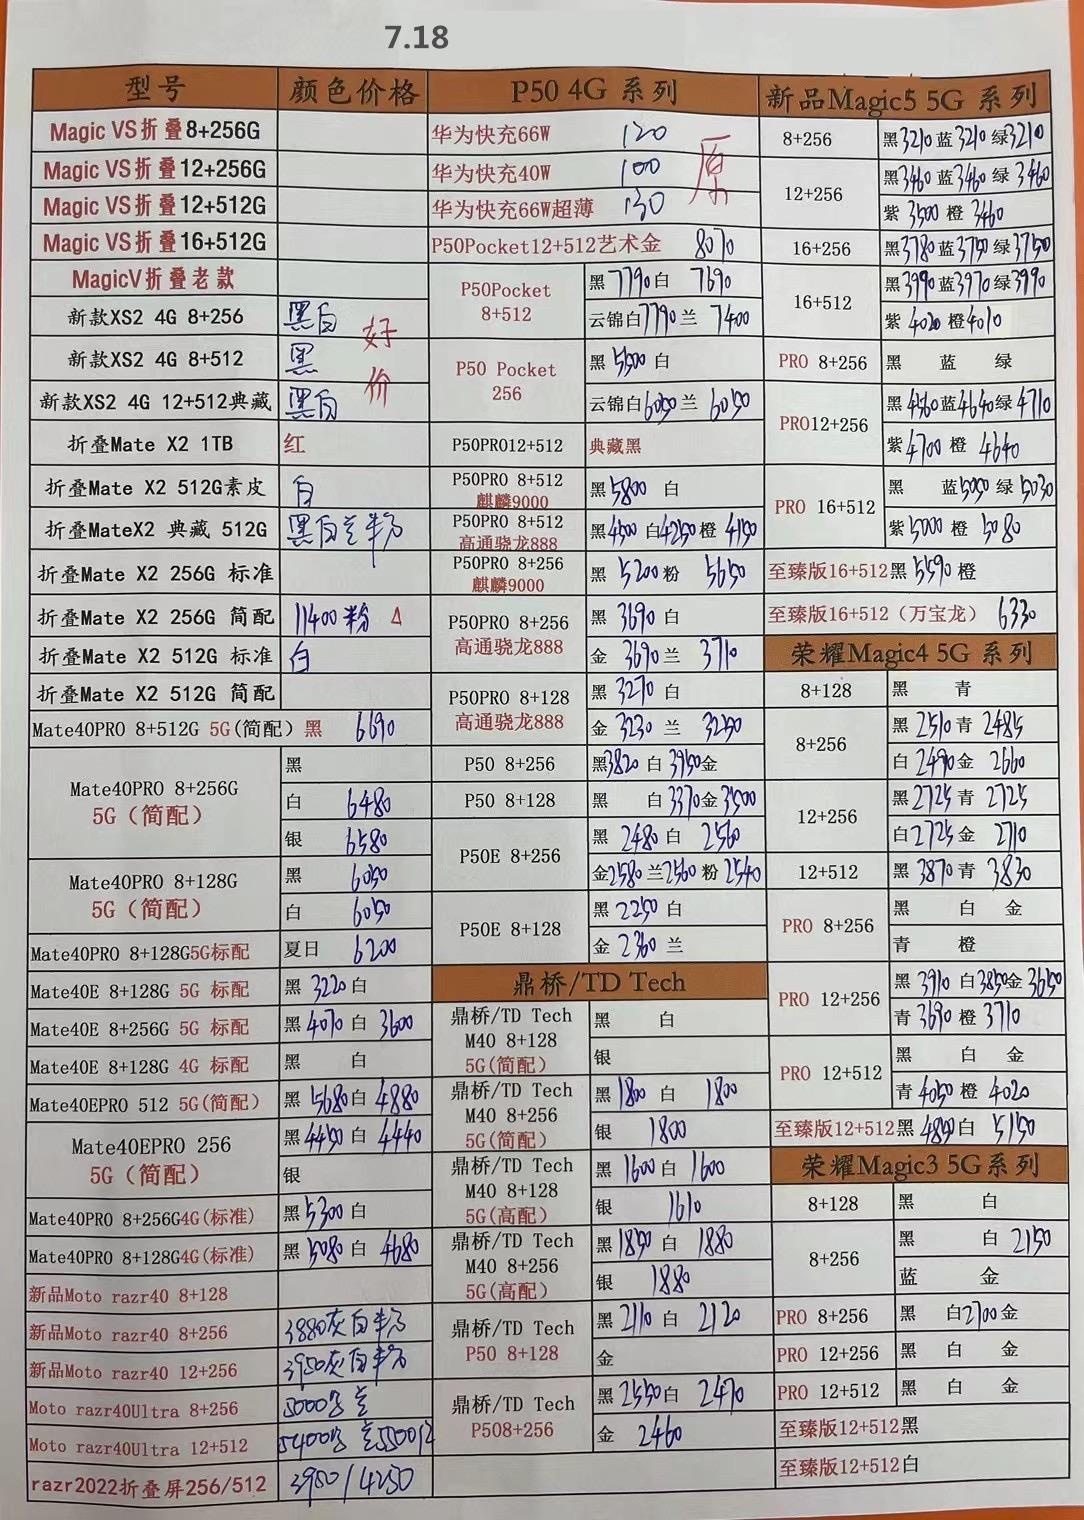 7.18
型号 颜色价格
Magic VS折叠8+256G
Magic VS折叠12+256G
Magic VS折叠12+512G
Magic VS折叠16+512G
MagicV折叠老款
新款XS2 4G 8+256 黑白 好
新款XS2 4G 8+512 黑
新款XS2 4G 12+512典藏 黑白 价
折叠Mate X2 1TB 红
折叠Mate X2 512G素皮 白
折叠MateX2 典藏 512G 黑白兰
折叠Mate X2 256G 标准
折叠Mate X2 256G 简配 11400粉 Δ
折叠Mate X2 512G 标准 白
折叠Mate X2 512G 简配
Mate40PRO 8+512G 5G(简配) 黑 6690
Mate40PRO 8+256G
5G (简配)
黑
白 6480
银 6580
Mate40PRO 8+128G
5G (简配)
黑 6050
白 6050
Mate40PRO 8+128G5G标配 夏日 6200
Mate40E 8+128G 5G 标配 黑 3220 白
Mate40E 8+256G 5G 标配 黑 4070 白 3600
Mate40E 8+128G 4G 标配 黑 白
Mate40EPRO 512 5G(简配) 黑 5680 白 4880
Mate40EPRO 256
5G (简配)
黑 4450 白 4440
银
Mate40PRO 8+256G4G(标准) 黑 5300 白
Mate40PRO 8+128G4G(标准) 黑 5080 白 4680
新品Moto razr40 8+128
新品Moto razr40 8+256 3880灰白
新品Moto razr40 12+256 3950灰白
Moto razr40Ultra 8+256 5000
Moto razr40Ultra 12+512 5400
razr2022折叠屏256/512 3950/4250
P50 4G 系列
华为快充66W 120
华为快充40W 100 原
华为快充66W超薄 130
P50Pocket12+512艺术金 8070
P50Pocket
8+512
黑 7790 白 7690
云锦白 7790 兰 7400
P50 Pocket
256
黑 5500 白
云锦白 6050 兰 6050
P50PRO12+512 典藏黑
P50PRO 8+512
麒麟9000
黑 5800 白
P50PRO 8+512
高通骁龙888
黑 4500 白 4250 橙 4150
P50PRO 8+256
麒麟9000
黑 5200 粉 5650
P50PRO 8+256
高通骁龙888
黑 3690 白
金 3690 兰 3710
P50PRO 8+128
高通骁龙888
黑 3270 白
金 3230 兰 3250
P50 8+256 黑 3820 白 3950 金
P50 8+128 黑 白 3370 金 3500
P50E 8+256
黑 2480 白 2560
金 2580 兰 2560 粉 2540
P50E 8+128
黑 2250 白
金 2360 兰
鼎桥/TD Tech
鼎桥/TD Tech
M40 8+128
5G(简配)
黑 白
银
鼎桥/TD Tech
M40 8+256
5G(简配)
黑 1800 白 1800
银 1800
鼎桥/TD Tech
M40 8+128
5G(高配)
黑 1600 白 1600
银 1610
鼎桥/TD Tech
M40 8+256
5G(高配)
黑 1850 白 1880
银 1880
鼎桥/TD Tech
P50 8+128
黑 2110 白 2120
金
鼎桥/TD Tech
P508+256
黑 2550 白 2470
金 2460
新品Magic5 5G 系列
8+256 黑 3210 蓝 3210 绿 3210
12+256
黑 3460 蓝 3460 绿 3460
紫 3500 橙 3460
16+256 黑 3780 蓝 3750 绿 3750
16+512
黑 3990 蓝 3970 绿 3990
紫 4020 橙 4010
PRO 8+256 黑 蓝 绿
PRO12+256
黑 4560 蓝 4640 绿 4710
紫 4700 橙 4640
PRO 16+512
黑 蓝 5050 绿 5030
紫 5000 橙 5080
至臻版16+512 黑 5590 橙
至臻版16+512 (万宝龙) 6330
荣耀Magic4 5G 系列
8+128 黑 青
8+256
黑 2510 青 2485
白 2490 金 2660
12+256
黑 2725 青 2725
白 2725 金 2710
12+512 黑 3870 青 3830
PRO 8+256
黑 白 金
青 橙
PRO 12+256
黑 3910 白 3850 金 3650
青 3690 橙 3710
PRO 12+512
黑 白 金
青 4050 橙 4020
至臻版12+512 黑 4850 白 5150
荣耀Magic3 5G系列
8+128 黑 白
8+256
黑 白 2150
蓝 金
PRO 8+256 黑 白 2700 金
PRO 12+256 黑 白 金
PRO 12+512 黑 白 金
至臻版12+512黑
至臻版12+512白